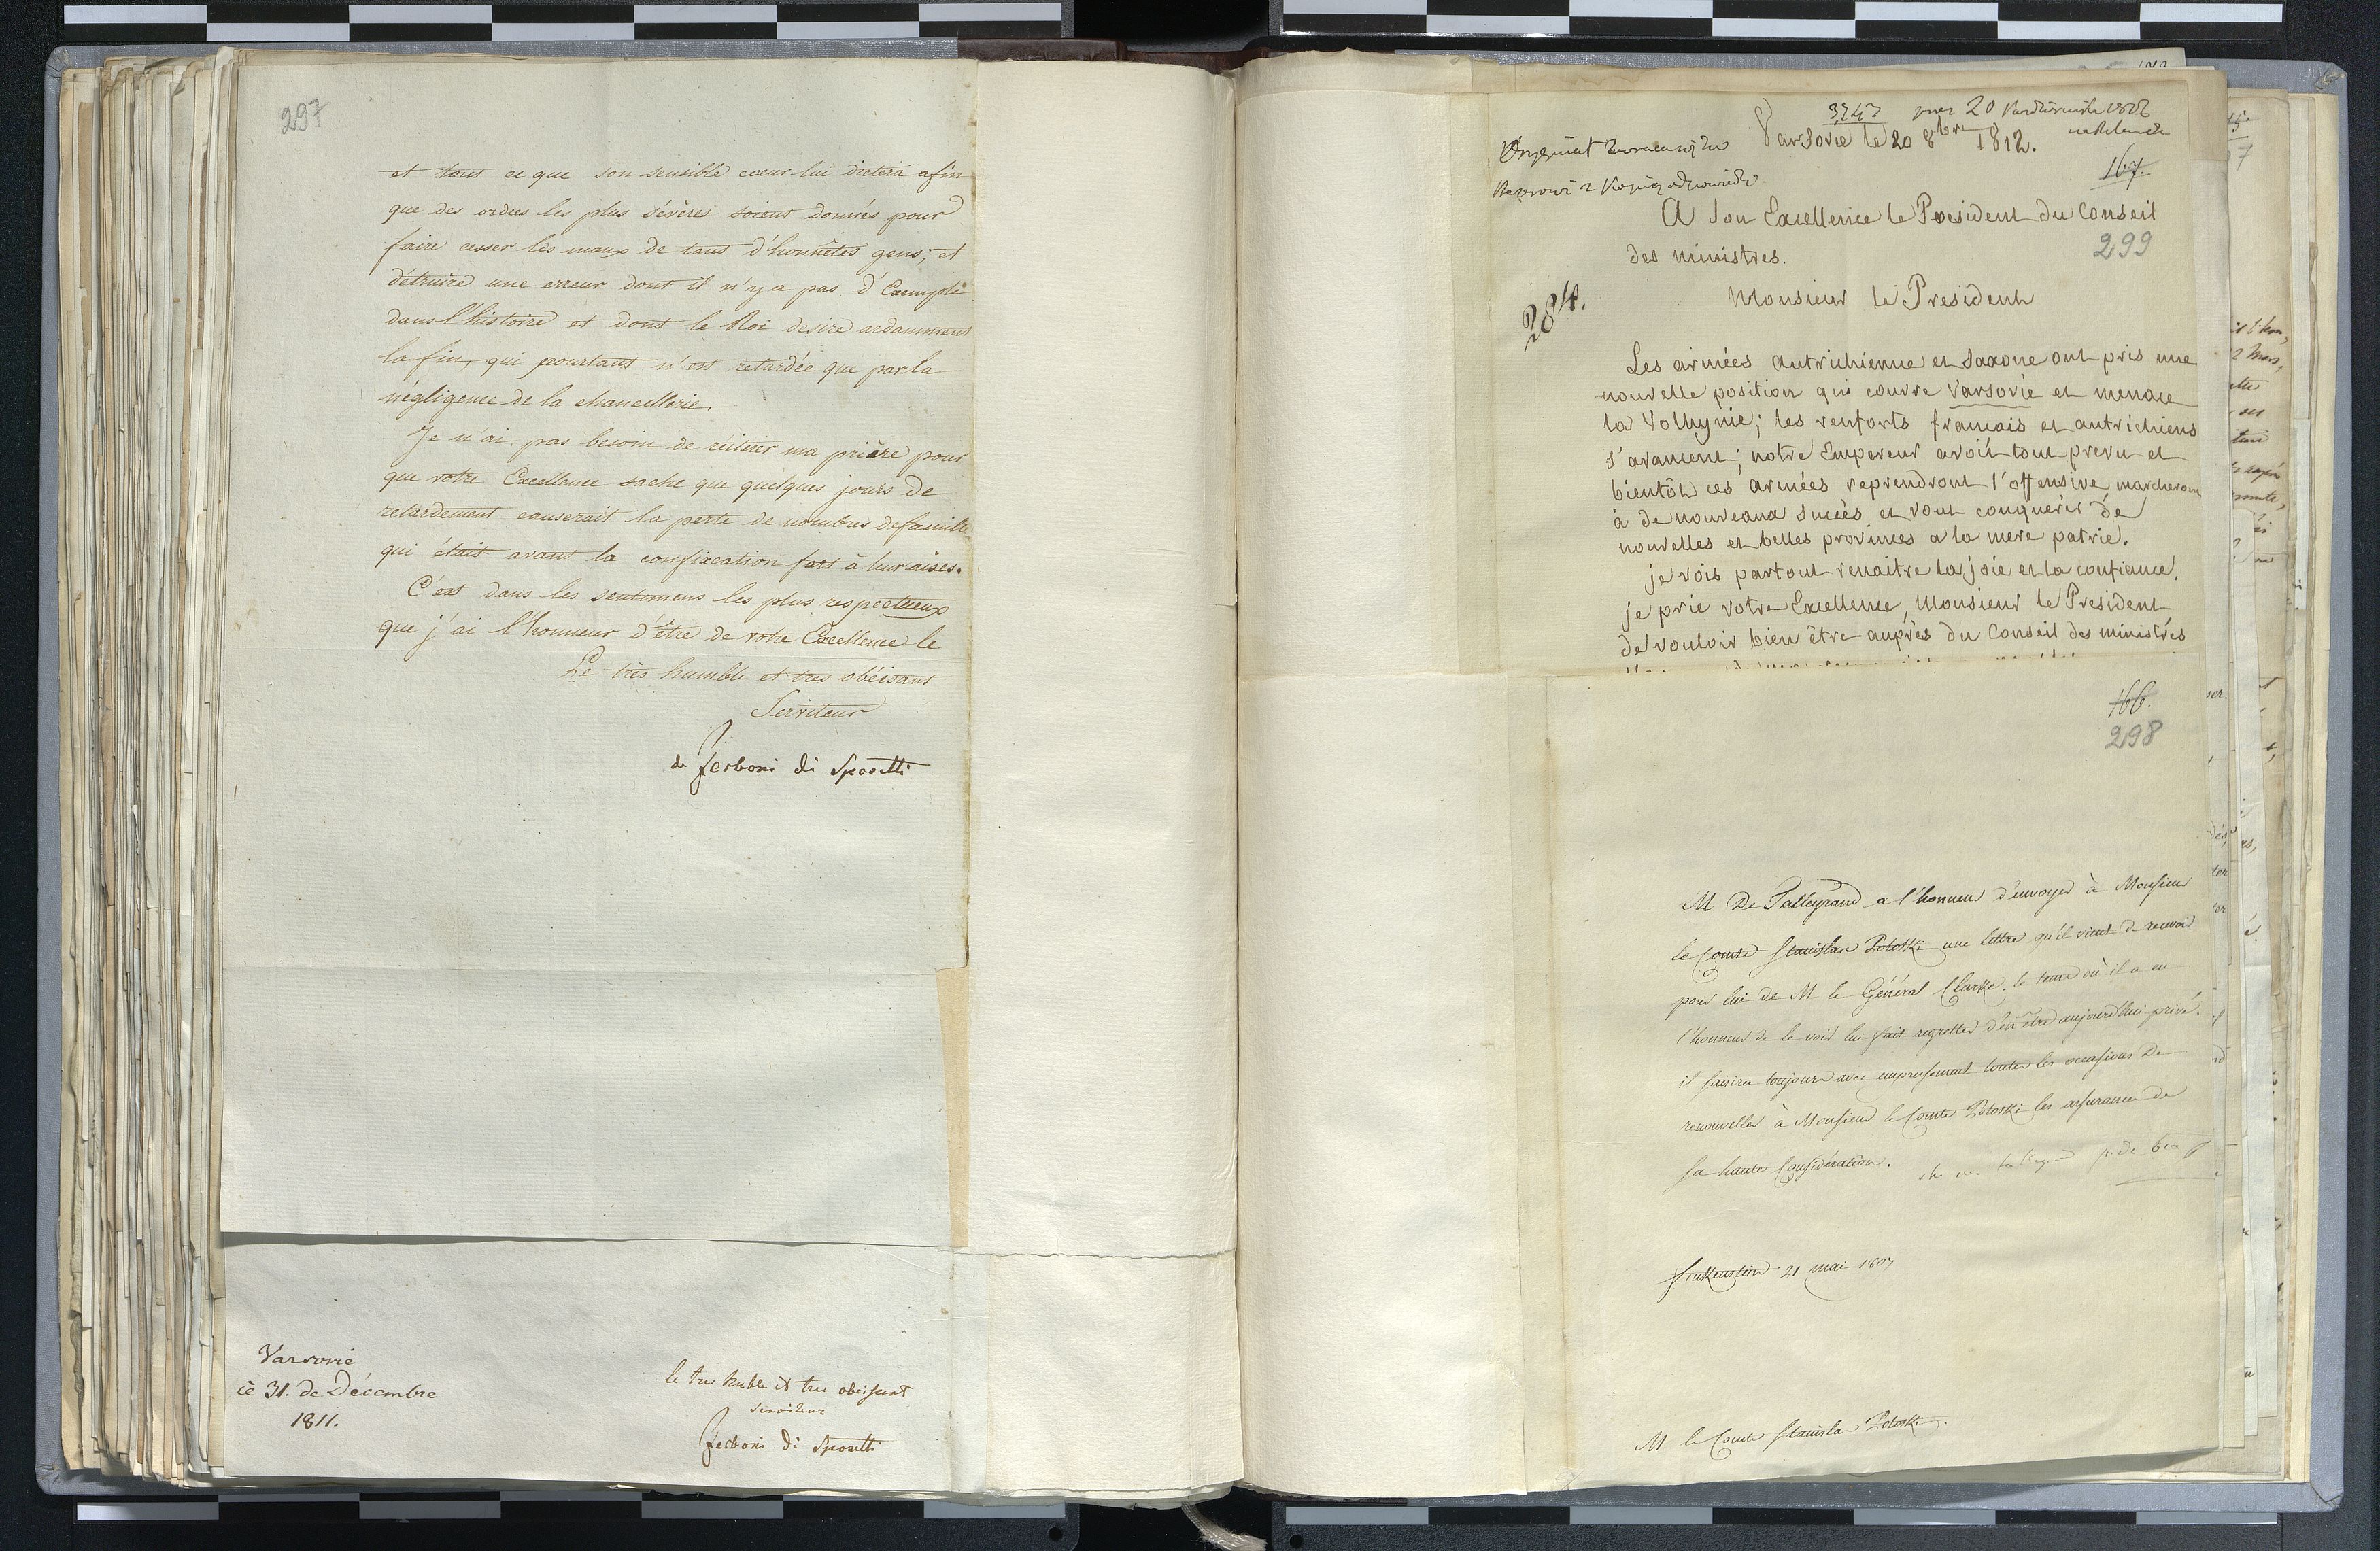 297
et tous ce que son sensible cœur lui dictera afin
que des ordres les plus sévères soient donnés pour
faire cesser les maux de tant d'honnêtes gens; et
détruire une erreur dont il n'y a pas d'Exemple
dans l'histoire et dont le Roi desire ardamment
la fin, qui pourtant n'est retardée que par la
négligence de la chancellerie.
Je n'ai pas besoin de réiterer ma prière pour
que votre Excellence sache que quelques jours de
retardement causerait la perte de nombres de famille
qui était avant la confiscation fort à leur aises.
C'est dans les sentomens les plus respectueux
que j'ai l'honneur d'être de votre Excellence le
Le très humble et tres obéisant
Serviteur
de Zerboni di Sposetti
Varsovie
cè 31. de Décembre
1811.
le tres huble et tres obeisant
Serviteur
Zerboni di Sposetti
3747 20 Października 1812
Varsovie le 20 8bre 1812.
167.
A Son Excellence le President du Conseil
299
des ministres.
284.
Monsieur le President
Les armées autrichienne et Saxone ont pris une
nouvelle position qui couvre Varsovie et menace
la Volhynie; les renforts francais et autrichiens
s'avancent; notre Empereur avoit tout prevu et
bientôt ces armées reprendront l'offensive, marcheront
à de nouveaux succès et vont conquèrir de
nouvelles et belles provinces a la mere patrie.
je vois partout renaitre la joie et la confiance.
je prie votre Excellence, Monsieur le President
de vouloir bien être auprès du Conseil des ministres
166.
298
M De Talleyrand a l'honneur d'envoyer à Monsieur
le Comte Stanislas Potoski une lettre qu'il vient de recevoir
pour lui de M le Général Clarke. le tems où il a eu
l'honneur de le voir lui fait regretter d'en être aujourd'hui privé.
il saisira toujours avec empressement toutes les occasions De
renouveller à Monsieur le Comte Potoski les assurances de
sa haute Considération.
finkenstein 21 mai 1807
M le Comte Stanislas Potoski.